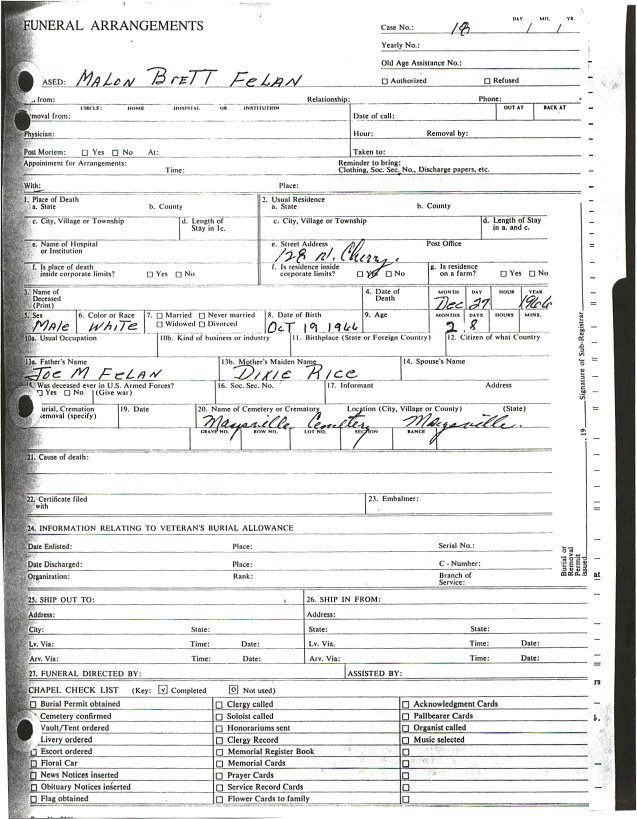 FUNERAL ARRANGEMENTS
Case No.: 18 DAY MO. YR. / /
Yearly No.:
Old Age Assistance No.:
ASED: MALON BRETT FELAN ☐ Authorized ☐ Refused
from: Relationship: Phone:
CIRCLE: HOME HOSPITAL OR INSTITUTION OUT AT BACK AT
moval from: Date of call:
Physician: Hour: Removal by:
Post Mortem: ☐ Yes ☐ No At: Taken to:
Appointment for Arrangements: Reminder to bring:
Time: Clothing, Soc. Sec. No., Discharge papers, etc.
With: Place:
1. Place of Death 2. Usual Residence
a. State b. County a. State b. County
c. City, Village or Township d. Length of Stay in 1c. c. City, Village or Township d. Length of Stay in a. and c.
e. Name of Hospital or Institution e. Street Address Post Office
128 N. Cherry.
f. Is place of death inside corporate limits? ☐ Yes ☐ No f. Is residence inside corporate limits? ☐ Yes ☐ No g. Is residence on a farm? ☐ Yes ☐ No
3. Name of Deceased (Print) 4. Date of Death MONTH DAY HOUR YEAR
Dec 27 1966
5. Sex 6. Color or Race 7. ☐ Married ☐ Never married ☐ Widowed ☐ Divorced 8. Date of Birth 9. Age MONTHS DAYS HOURS MINS.
MALE WHITE OCT 19 1966 2 8
10a. Usual Occupation 10b. Kind of business or industry 11. Birthplace (State or Foreign Country) 12. Citizen of what Country
13a. Father's Name 13b. Mother's Maiden Name 14. Spouse's Name
JOE M FELAN DIXIE RICE
15. Was deceased ever in U.S. Armed Forces? 16. Soc. Sec. No. 17. Informant Address
☐ Yes ☐ No (Give war)
urial, Cremation emoval (specify) 19. Date 20. Name of Cemetery or Crematory Location (City, Village or County) (State)
Marysville Cemetery Marysville.
GRAVE NO. ROW NO. LOT NO. SECTION RANGE
21. Cause of death:
22. Certificate filed with 23. Embalmer:
24. INFORMATION RELATING TO VETERAN'S BURIAL ALLOWANCE
Date Enlisted: Place: Serial No.:
Date Discharged: Place: C - Number:
Organization: Rank: Branch of Service:
25. SHIP OUT TO: 26. SHIP IN FROM:
Address: Address:
City: State: State: State:
Lv. Via: Time: Date: Lv. Via. Time: Date:
Arv. Via: Time: Date: Arv. Via: Time: Date:
27. FUNERAL DIRECTED BY: ASSISTED BY:
CHAPEL CHECK LIST (Key: ☑ Completed ☐ Not used)
☐ Burial Permit obtained ☐ Clergy called ☐ Acknowledgment Cards
Cemetery confirmed ☐ Soloist called ☐ Pallbearer Cards
Vault/Tent ordered ☐ Honorariums sent ☐ Organist called
Livery ordered ☐ Clergy Record ☐ Music selected
☐ Escort ordered ☐ Memorial Register Book ☐
☐ Floral Car ☐ Memorial Cards ☐
☐ News Notices inserted ☐ Prayer Cards ☐
☐ Obituary Notices inserted ☐ Service Record Cards ☐
☐ Flag obtained ☐ Flower Cards to family ☐
Signature of Sub-Registrar
19
Burial or Removal Permit issued
at
rs